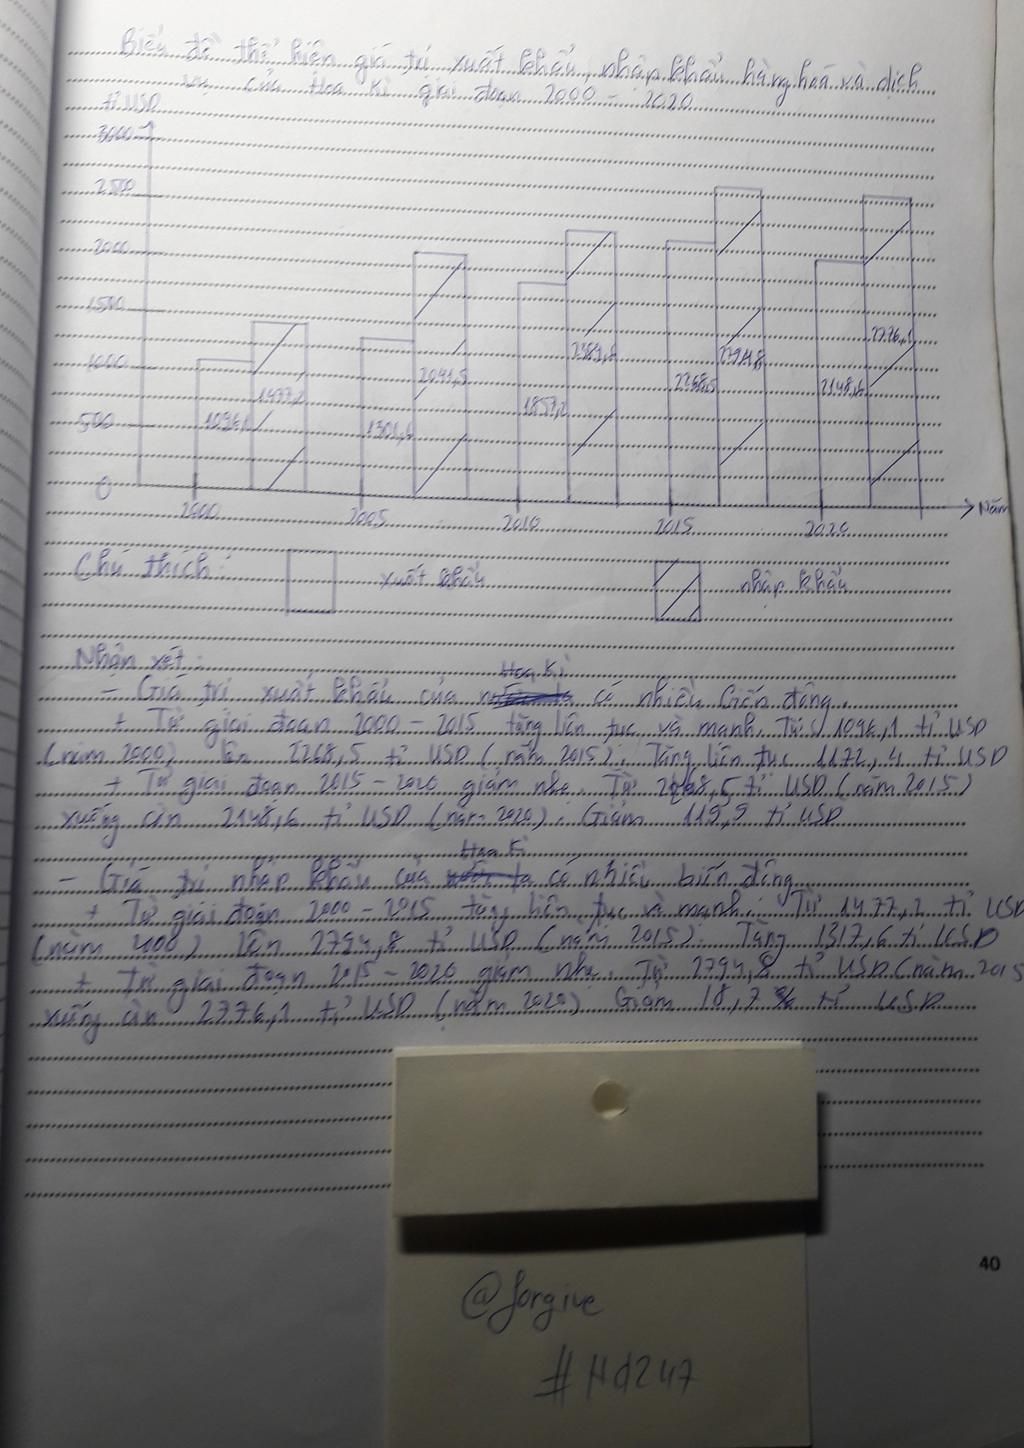 Biểu đồ thể hiện giá trị xuất khẩu, nhập khẩu hàng hoá và dịch
vụ của Hoa Kì giai đoạn 2000 - 2020
tỉ USD
3000
2500
2000
1500
1000
500
0
1096,1
1477,2
1301,6
2041,5
1857,2
2389,6
2268,5
2794,8
2148,6
2776,1
2000
2005
2010
2015
2020
Năm
Chú thích:
xuất khẩu
nhập khẩu
Nhận xét:
- Giá trị xuất khẩu của Hoa Kì có nhiều biến động.
+ Từ giai đoạn 2000 - 2015 tăng liên tục và mạnh. Từ 1096,1 tỉ USD
(năm 2000) lên 2268,5 tỉ USD (năm 2015). Tăng liên tục 1172,4 tỉ USD
+ Từ giai đoạn 2015 - 2020 giảm nhẹ. Từ 2268,5 tỉ USD (năm 2015)
xuống còn 2148,6 tỉ USD (năm 2020). Giảm 119,9 tỉ USD
- Giá trị nhập khẩu của Hoa Kì có nhiều biến động
+ Từ giai đoạn 2000 - 2015 tăng liên tục và mạnh. Từ 1477,2 tỉ USD
(năm 2000) lên 2794,8 tỉ USD (năm 2015). Tăng 1317,6 tỉ USD
+ Từ giai đoạn 2015 - 2020 giảm nhẹ. Từ 2794,8 tỉ USD (năm 2015
xuống còn 2776,1 tỉ USD (năm 2020) Giảm 18,7 tỉ USD
40
@forgive
#Hd247